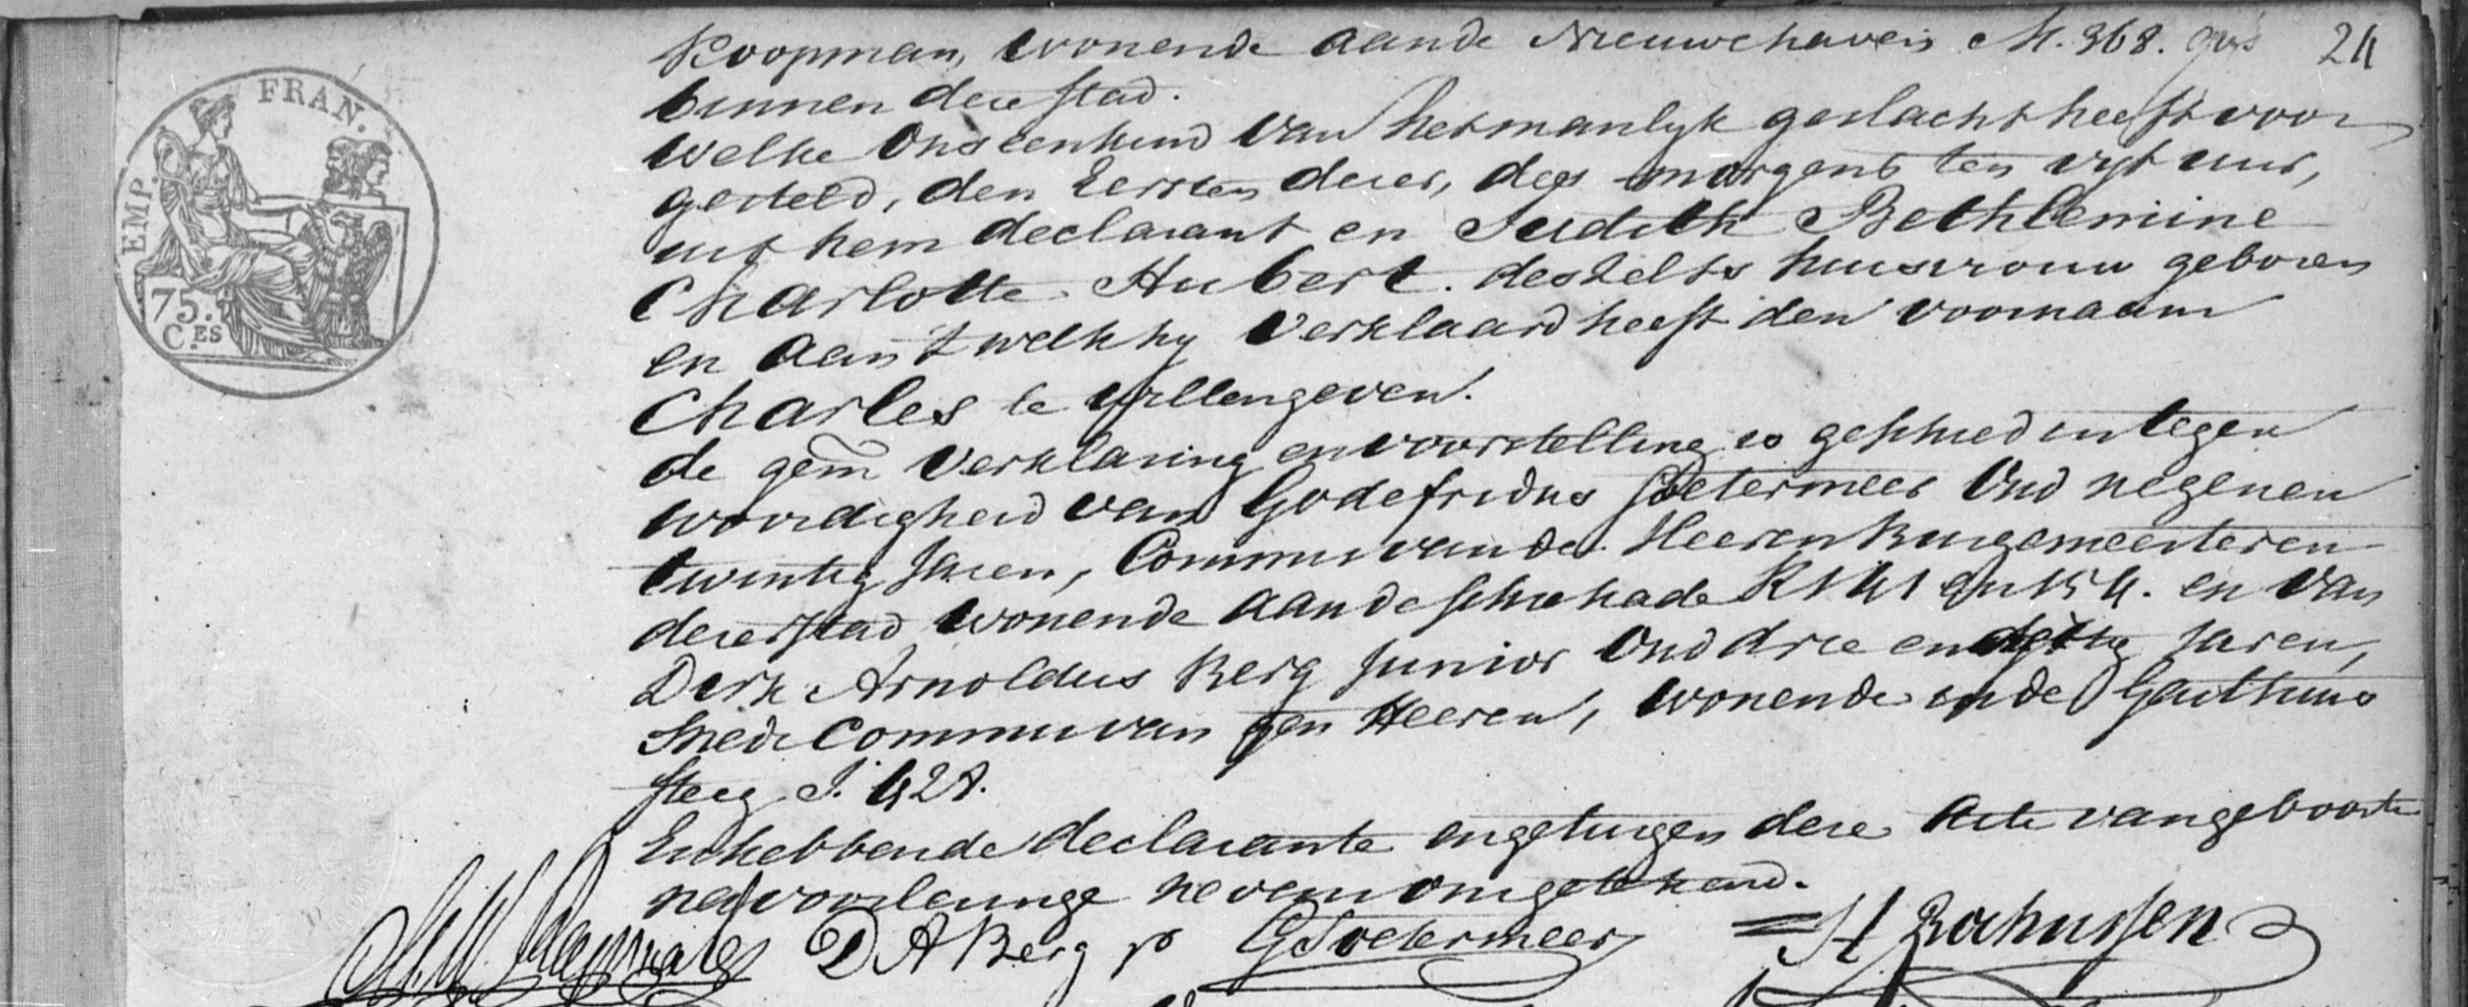 FRAN.
EMP.
75.
C.ES
24
Koopman, wonende aande Nieuwehaven M. 368.
binnen deze stad.
Welke ons eenkind van het manlyk geslacht heeft voor
gesteld, den Eersten dezer, des morgens ten vyf uur,
uit hem declarant en Judith Bethlemine
Charlotte Hubert. deszelfs huisvrouw geboren
en aan 't welk hy Verklaard heeft den voornaam
Charles te willen geven.
de gem Verklaring en voorstelling is geschied in tegen
woordigheid van Godefridus Soetermeer Oud negenen
twintig Jaren, Commis van de Heeren Burgemeesteren
dezer stad wonende aan de Schiekade R 1141 en van
Dirk Arnoldus Berg Junior Oud drie en Jaren,
Mede Commis van gem Heeren, wonende in de Gasthuis
steeg I. 428.
En hebben de declarante en getuigen deze Acte van geboorte
na voorlezinge nevens ons getekend.
D A Berg Jr
G Soetermeer
H Rochussen